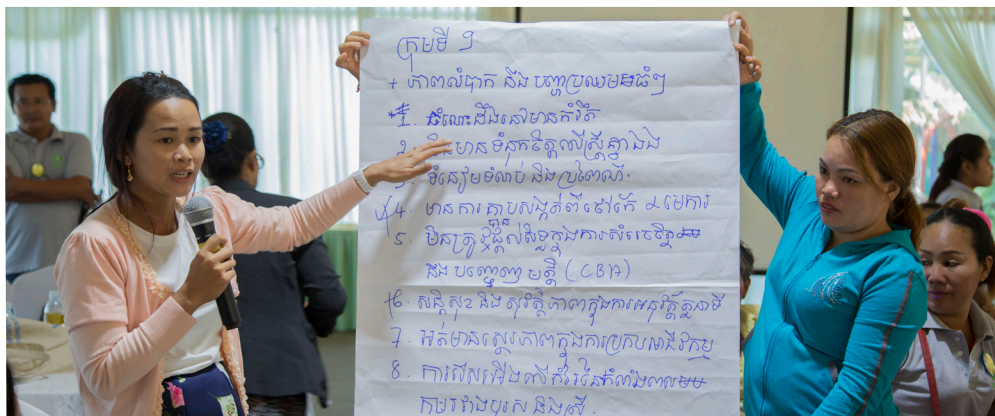 ក្រុមទី ១
+ ភាពលំបាក និង បញ្ហាប្រឈមធំៗ
*1. ចំណេះដឹងនៅមានកំរិត
2. មិនមានទំនុកចិត្តលើស្ត្រីគ្នាឯង
3. ទំនៀមទំលាប់ និងប្រពៃណី.
4. មានការគ្នាបសង្កត់ពីថៅកែ ៨ មេការ
5. មិនត្រូវផ្តល់សិទ្ធក្នុងការសំរេចចិត្ត
ជង បញ្ចេញ មតិ្ត (CBA)
*6. សន្តិសុខ និង សុវត្ថិភាពក្នុងការអនុវត្តតួនាទី
7. អត់មានស្ថេរភាពក្នុងការប្រកបរបរអាជីវកម្ម
8. ការរើសអើងលើកំរៃនៃកំលាំងពលកម្ម
រវាងបុរស និងស្រី.